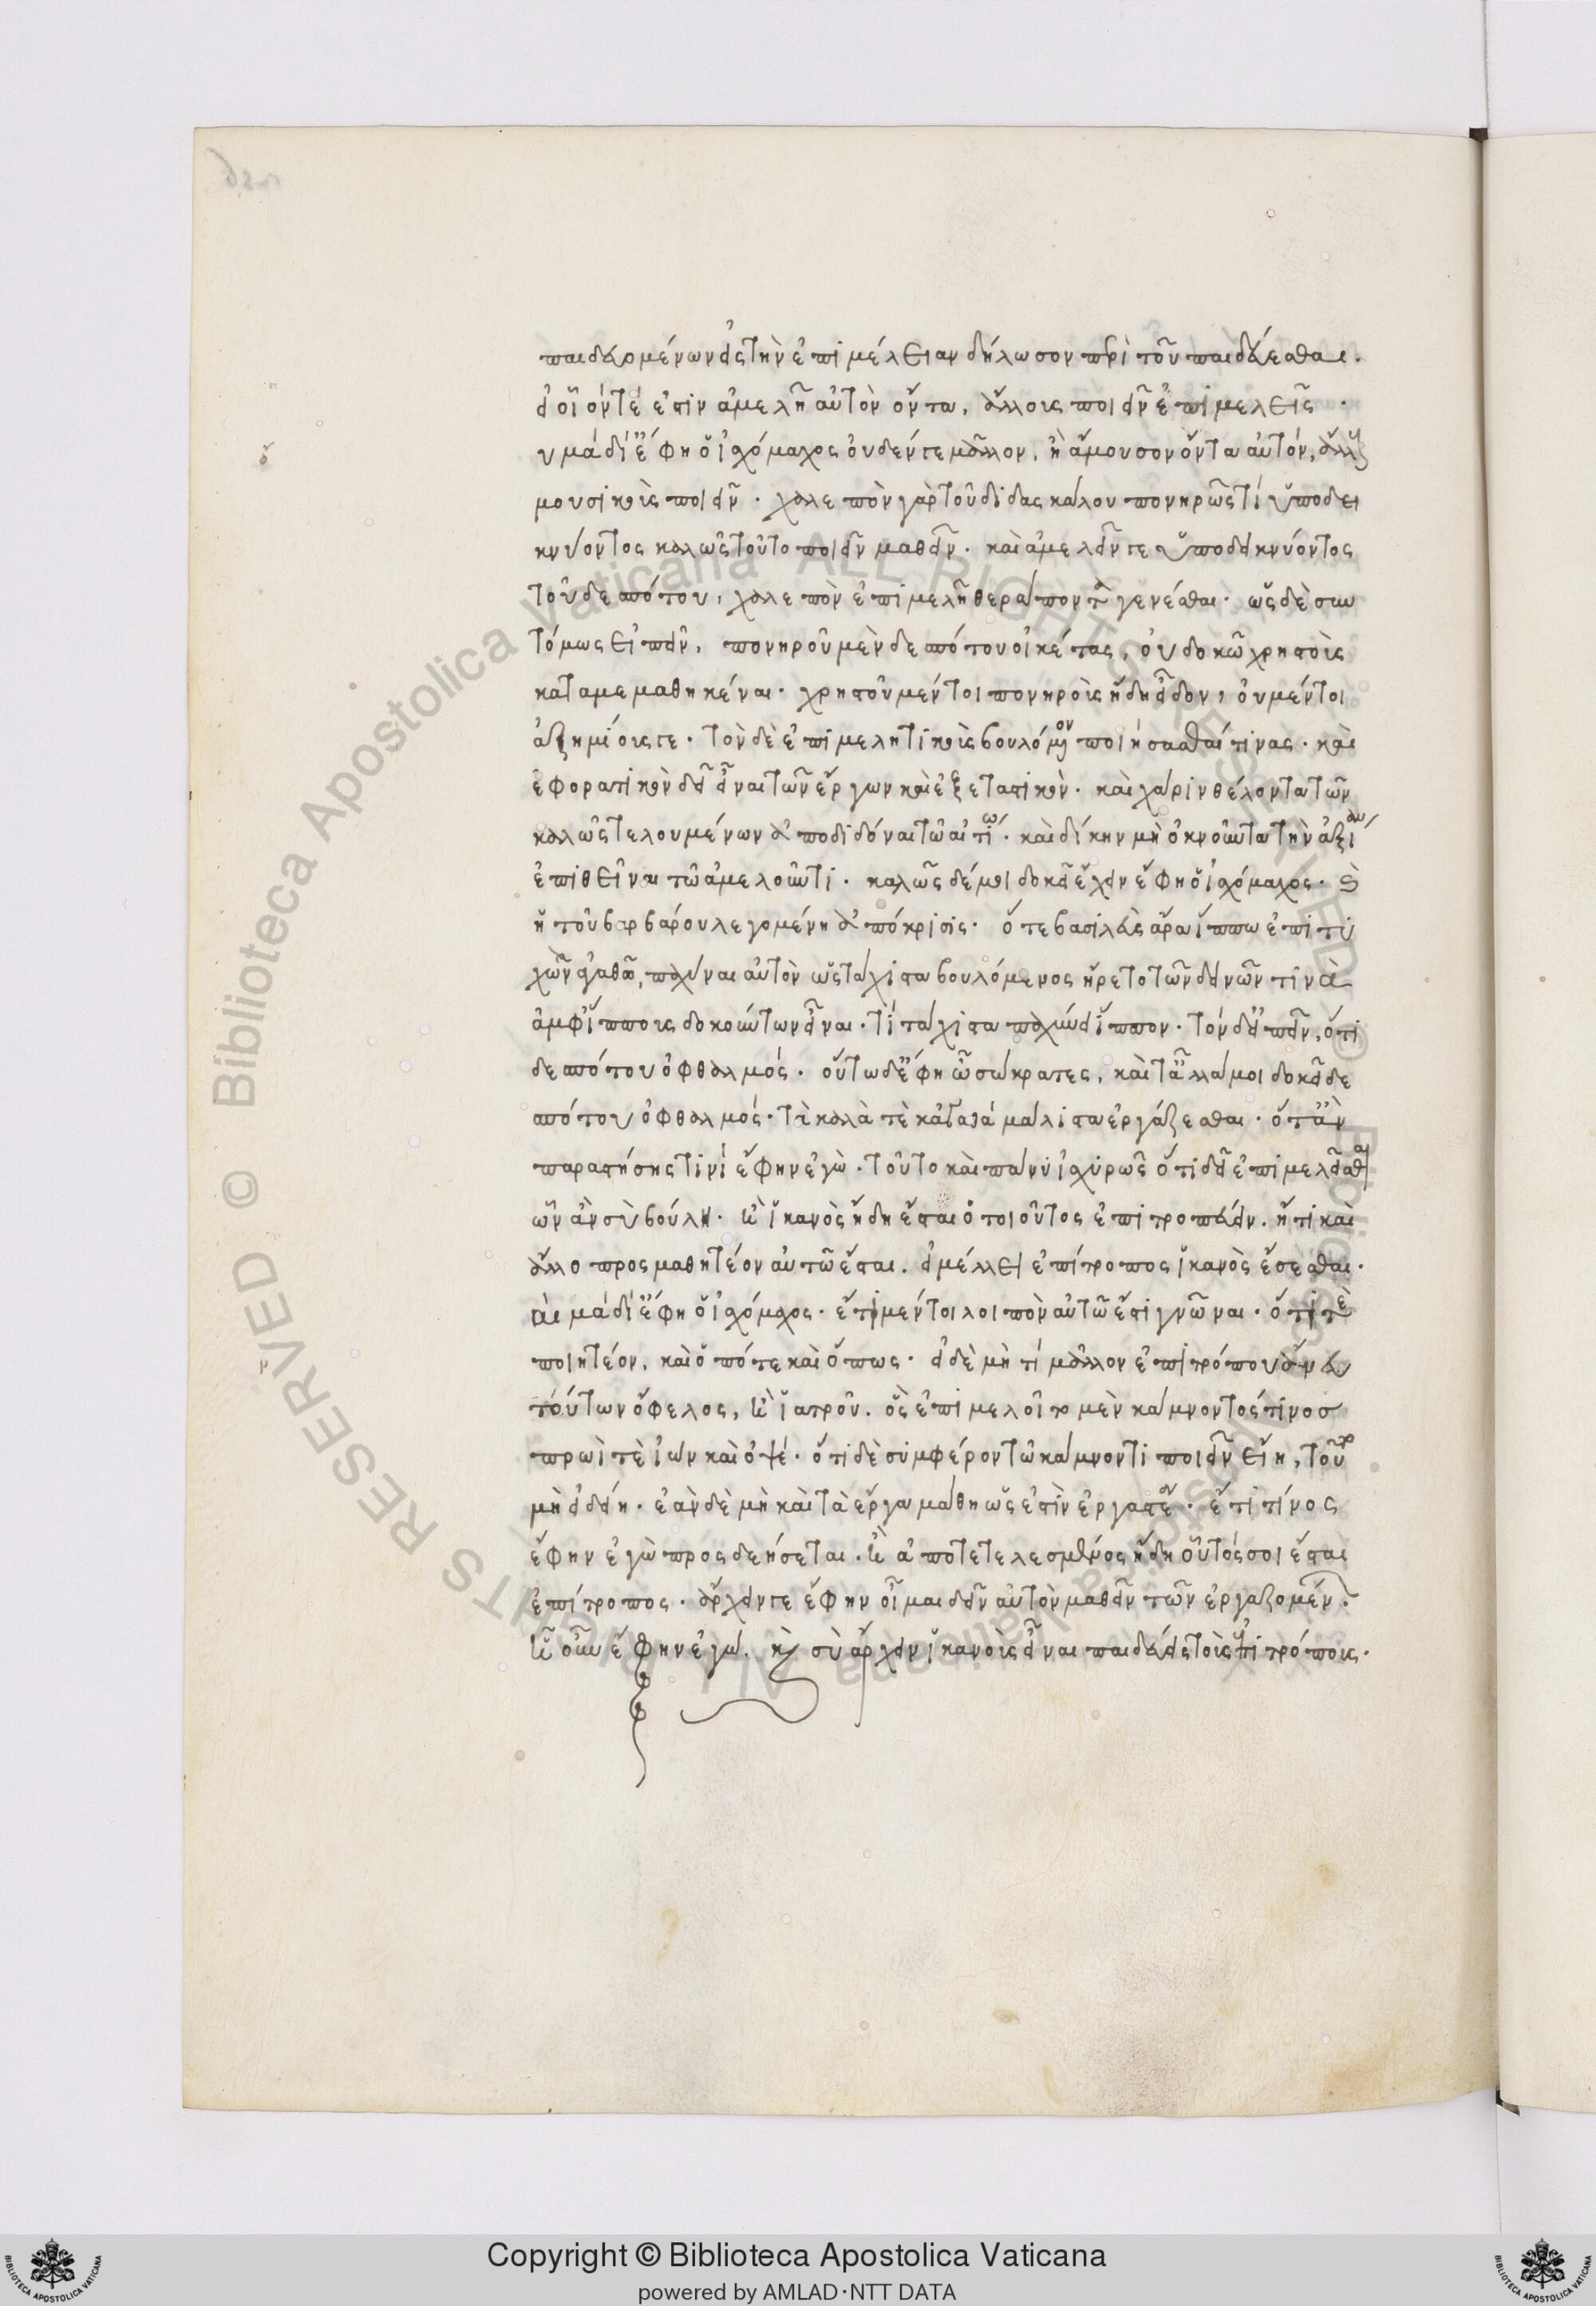 παιδευομένων εἰς τὴν ἐπιμέλειαν δήλωσον περὶ τοῦ παιδεύεσθαι.
εἰ οἷόν τέ ἐστιν ἀμελῆ αὐτὸν ὄντα, ἄλλους ποιεῖν ἐπιμελεῖς.
ὐ μὰ δί ἔφη ὁ ἰσχόμαχος οὐδέν γε μᾶλλον, ἢ ἄμουσον ὄντα αὐτόν, ἄλλους
μουσικοὺς ποιεῖν. χαλεπὸν γὰρ τοῦ διδασκάλου πονηρῶς τί ὑποδει
κνύοντος καλῶς τοῦτο ποιεῖν μαθεῖν. καὶ ἀμελεῖν γε ὑποδεικνύοντος
τοῦ δεσπότου, χαλεπὸν ἐπιμελῆ θεράποντα γενέσθαι. ὡς δὲ συν
τόμως εἰπεῖν, πονηροῦ μὲν δεσπότου οἰκέτας, οὐ δοκῶ χρηστοὺς
καταμεμαθηκέναι. χρηστοῦ μέντοι πονηροὺς ἤδη εἶδον, οὐ μέντοι
ἀζημίους γε. τὸν δὲ ἐπιμελητικοὺς βουλόμενον ποιήσασθαί τινας. καὶ
ἐφορατικὸν δεῖ εἶναι τῶν ἔργων καὶ ἐξεταστικόν. καὶ χάριν θέλοντα τῶν
καλῶς τελουμένων ἀποδιδόναι τῶ αἰτίω. καὶ δίκην μὴ ὀκνοῦντα τὴν ἀξίαν
ἐπιθεῖναι τῶ ἀμελοῦντι. καλῶς δέ μοι δοκεῖ ἔχειν ἔφη ὁ ἰσχόμαχος. καὶ
ἡ τοῦ βαρβάρου λεγομένη ἀπόκρισις. ὅτε βασιλεὺς ἄρα ἵππω ἐπιτυ
χὼν ἀγαθοῦ, παχῦναι αὐτὸν ὡς τάχιστα βουλόμενος ἤρετο τῶν δεινῶν τινὰ
ἀμφ' ἵππους δοκούντων εἶναι. τί τάχιστα παχύνει ἵππον. τὸν δ' εἰπεῖν, ὅτι
δεσπότου ὀφθαλμός. οὕτω δ' ἔφη ὦ σώκρατες, καὶ τἆλλά μοι δοκεῖ δε
σπότου ὀφθαλμός. τὰ καλὰ τὲ κἀγαθὰ μάλιστα ἐργάζεσθαι. ὅταν
παραστήσης τινί ἔφην ἐγὼ. τοῦτο καὶ πάνυ ἰσχυρῶς ὅτι δεῖ ἐπιμελεῖσθαι
ὧν ἂν σὺ βούλη. ἦ ἱκανὸς ἤδη ἔσται ὁ τοιοῦτος ἐπιτροπεύειν. ἤ τι καὶ
ἄλλο προσμαθητέον αὐτῶ ἔσται. εἰ μέλλει ἐπίτροπος ἱκανὸς ἔσεσθαι.
ναὶ μὰ δί ἔφη ὁ ἰσχόμαχος. ἔτι μέντοι λοιπὸν αὐτῶ ἐστὶ γνῶναι. ὅτι τὲ
ποιητέον, καὶ ὁπότε καὶ ὅπως. εἰ δὲ μὴ τί μᾶλλον ἐπιτρόπου ἄνευ
τούτων ὄφελος, ἢ ἰατροῦ. ὃς ἐπιμελοῖτο μὲν κάμνοντός τινος
πρωὶ τὲ ἰὼν καὶ ὀψέ. ὅτι δὲ συμφέρον τῶ κάμνοντι ποιεῖν εἴη, τοῦτο
μὴ εἰδείη. ἐὰν δὲ μὴ καὶ τὰ ἔργα μάθη ὡς ἐστὶν ἐργαστέα. ἔτι τίνος
ἔφην ἐγὼ προσδεήσεται. ἢ ἀποτετελεσμένος ἤδη οὗτός σοι ἔσται
ἐπίτροπος. ἄρχειν γε ἔφην οἶμαι δεῖν αὐτὸν μαθεῖν τῶν ἐργαζομένων.
ἦ οὖν ἔφην ἐγώ. καὶ σὺ ἄρχειν ἱκανοὺς εἶναι παιδεύεις τοὺς ἐπιτρόπους.
Copyright © Biblioteca Apostolica Vaticana
powered by AMLAD·NTT DATA